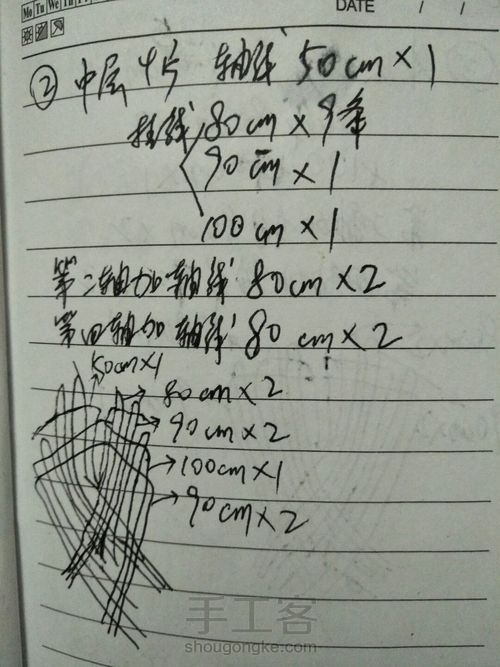 Mo Tu We Th F
DATE / /
② 中层 4片 轴线 50cm×1
挂线 80cm×9条
90cm×1
100cm×1
第二轴加轴线 80cm×2
第四轴加轴线 80cm×2
50cm×1
80cm×2
90cm×2
100cm×1
90cm×2
手工客
shougongke.com